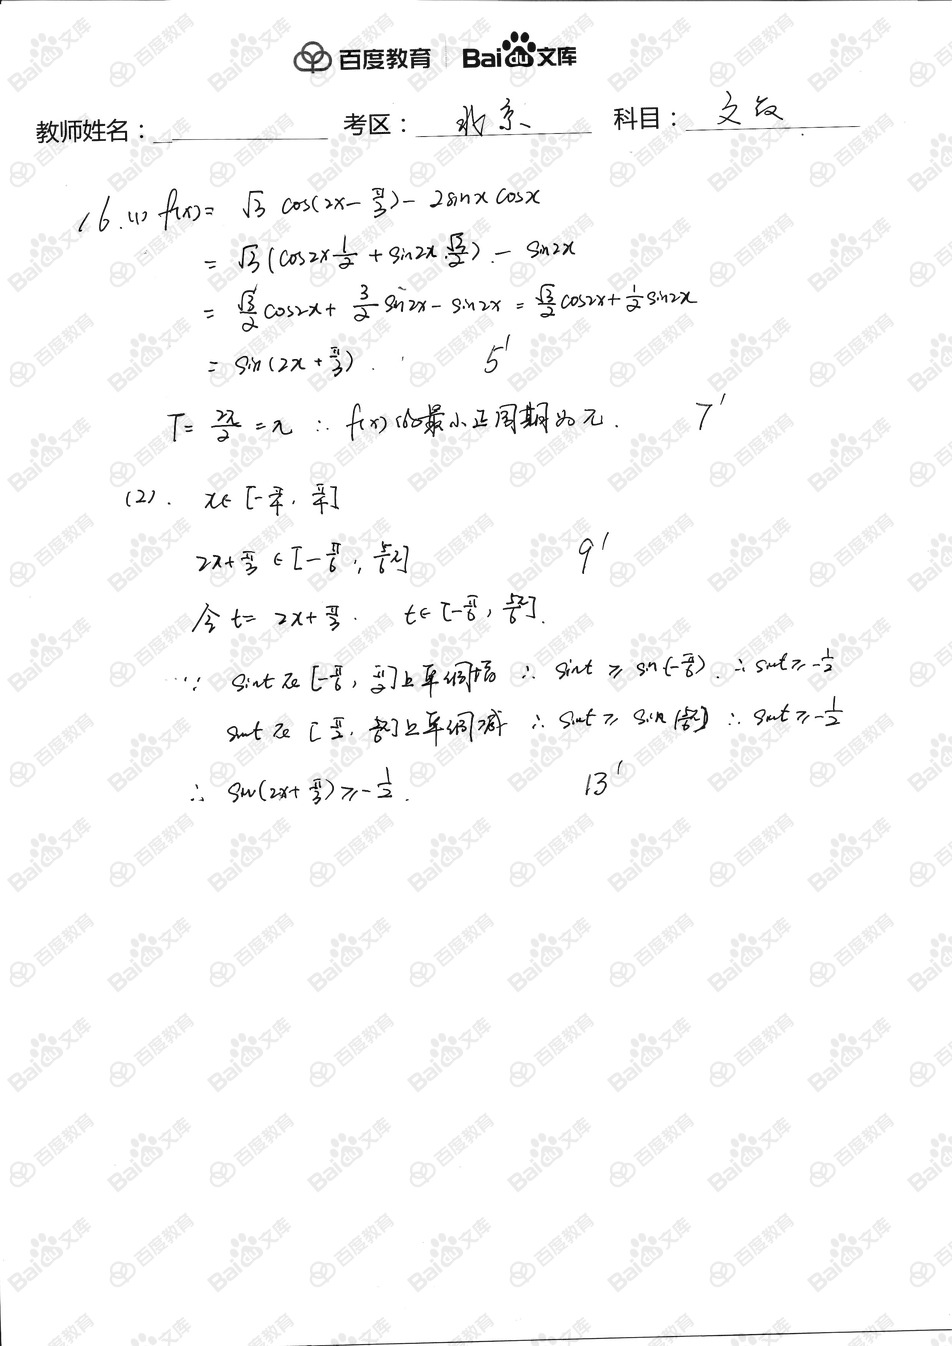 百度教育 Baidu文库
教师姓名： 考区： 北京 科目： 文数
16.(1) f(x)= √3 cos(2x-π/3)- 2sinx cosx
= √3(cos2x·1/2 + sin2x·√3/2) - sin2x
= √3/2 cos2x+ 3/2 sin2x- sin2x = √3/2 cos2x+ 1/2 sin2x
= sin(2x+π/3). 5'
T= 2π/2 =π ∴ f(x)的最小正周期为π. 7'
(2). x∈[-π/4, π/4]
2x+π/3 ∈[-π/6, 5π/6] 9'
令t= 2x+π/3. t∈[-π/6, 5π/6].
∵ sint在[-π/6, π/2]上单调增 ∴ sint ≥ sin(-π/6). ∴ sint≥-1/2
sint在[π/2, 5π/6]上单调减 ∴ sint≥ sin(5π/6) ∴ sint≥-1/2
∴ sin(2x+π/3)≥-1/2. 13'